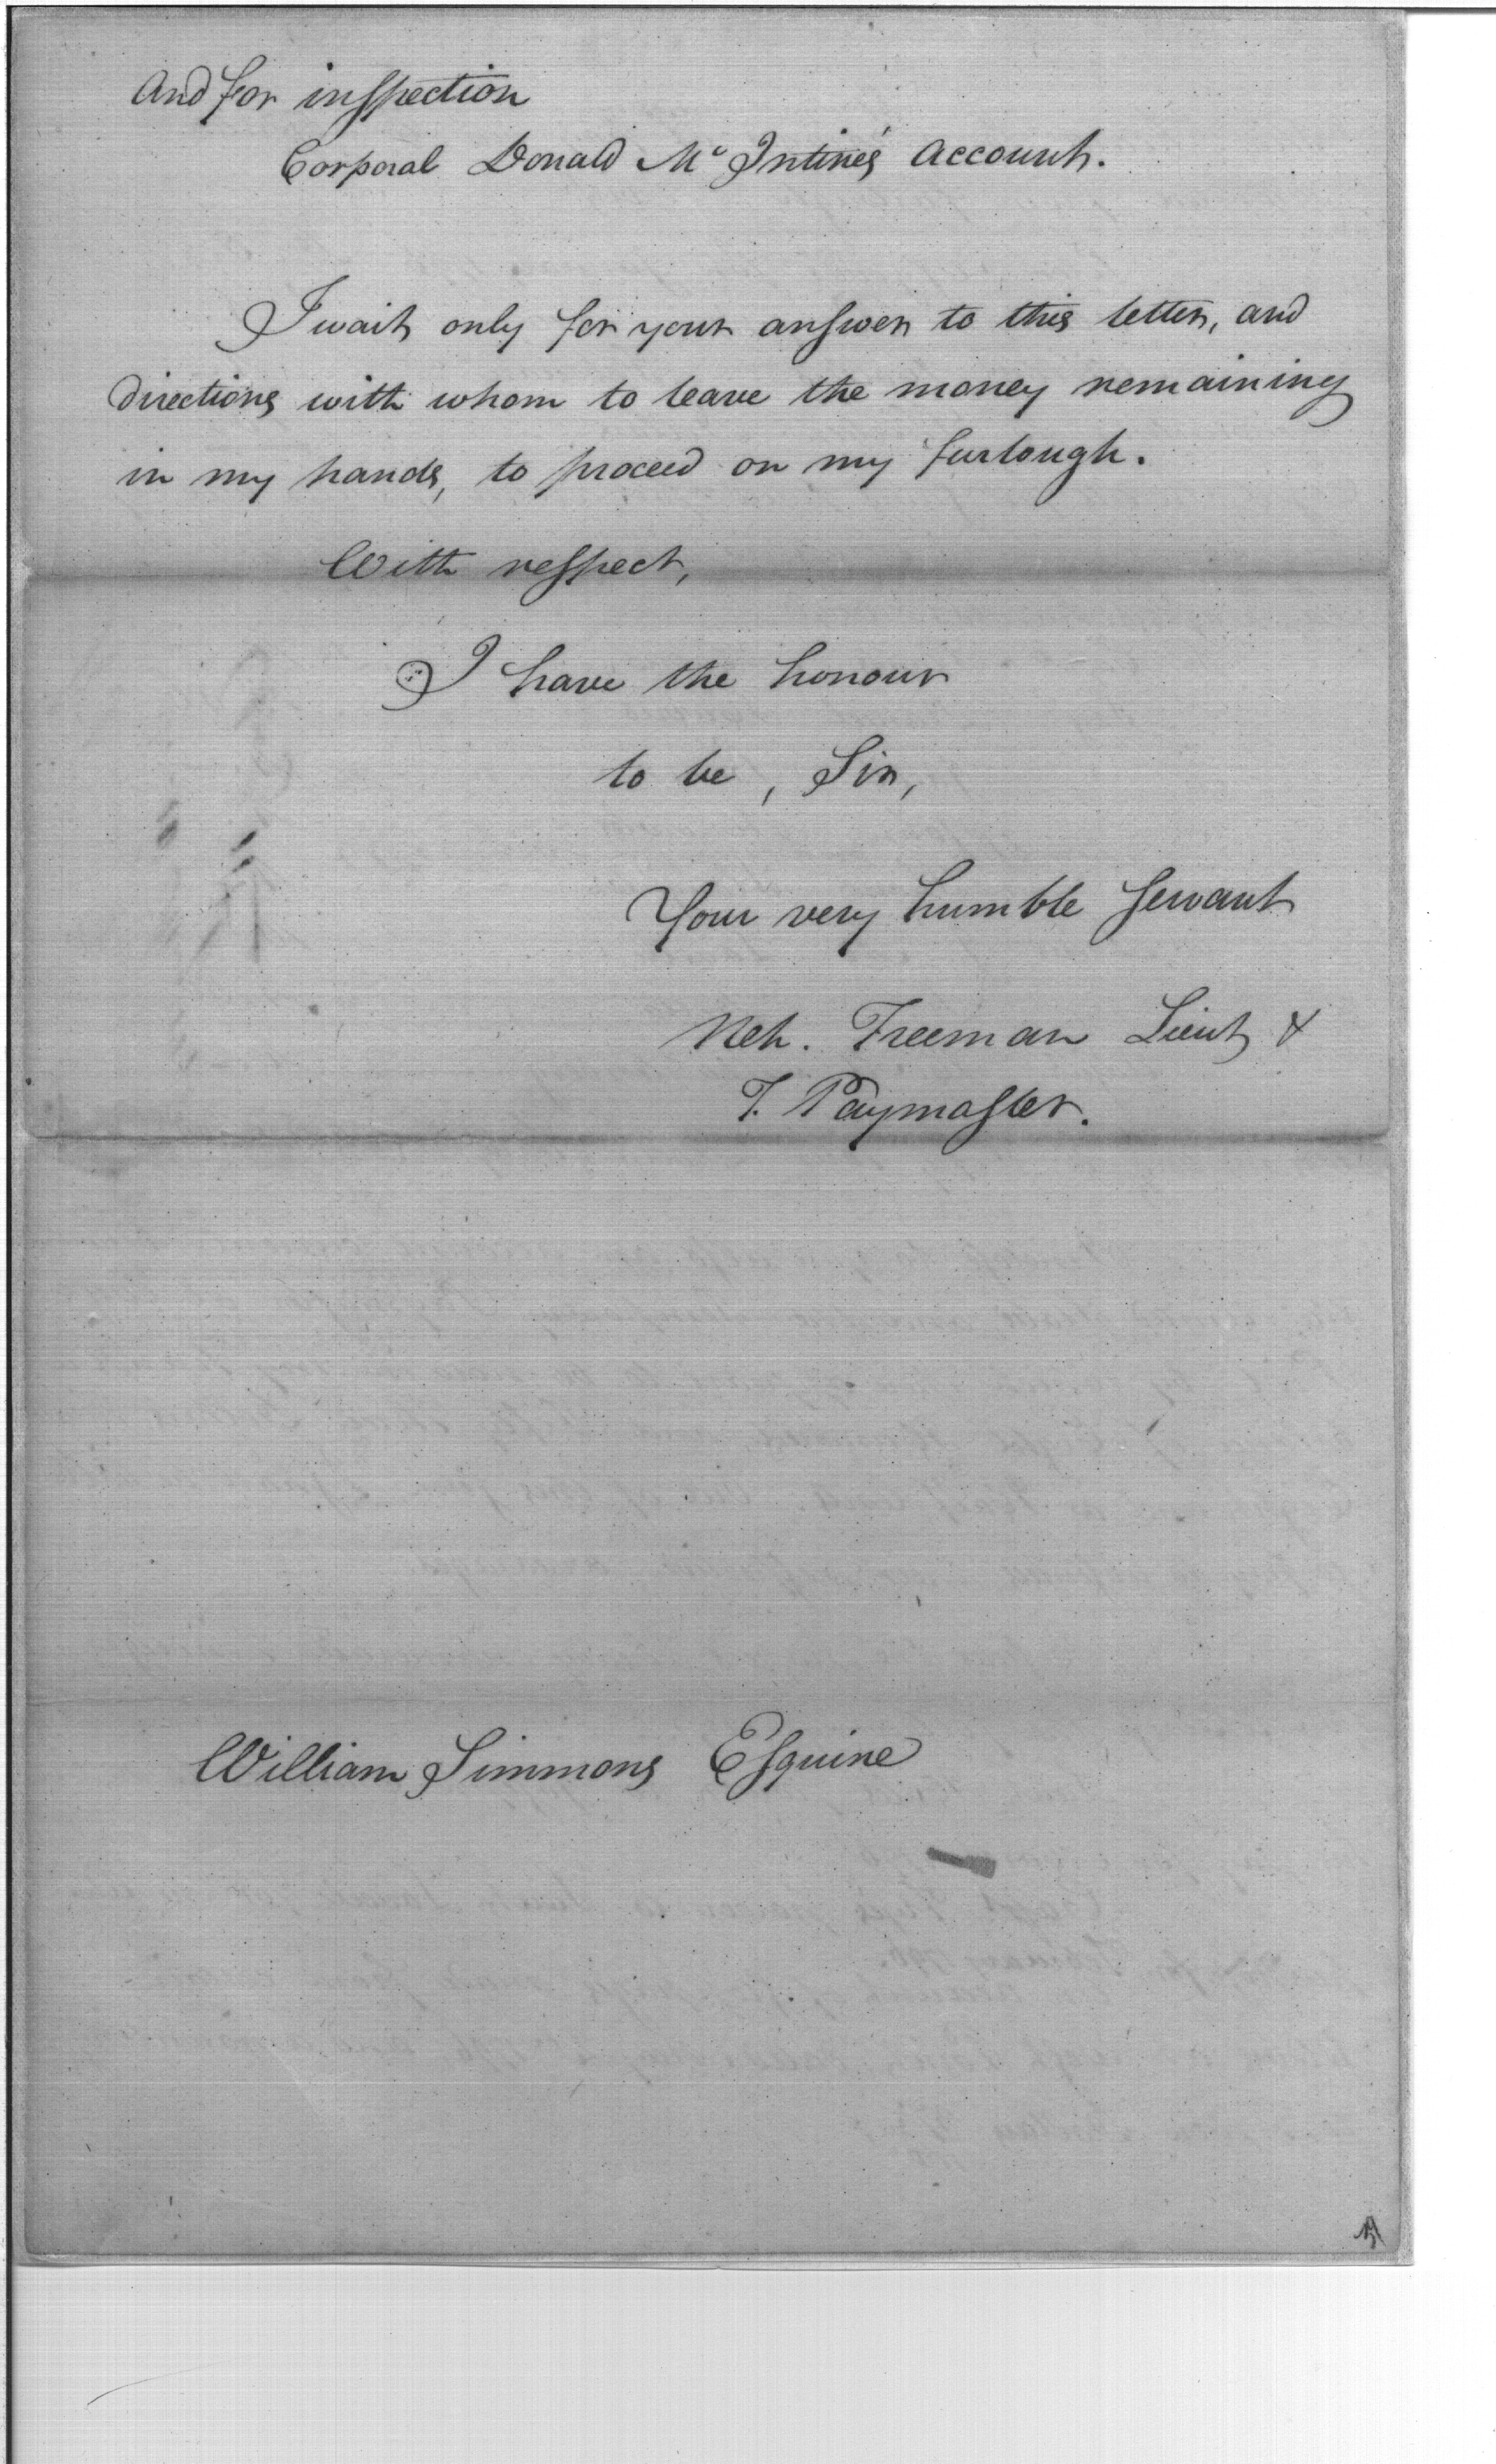 And for inspection
Corporal Donald Mc Intire's Account.
I wait only for your answer to this letter, and
directions with whom to leave the money remaining
in my hands, to proceed on my furlough.
With respect,
I have the honour
to be, Sir,
Your very humble servant
Neh. Freeman Lieut &
T. Paymaster.
William Simmons Esquire